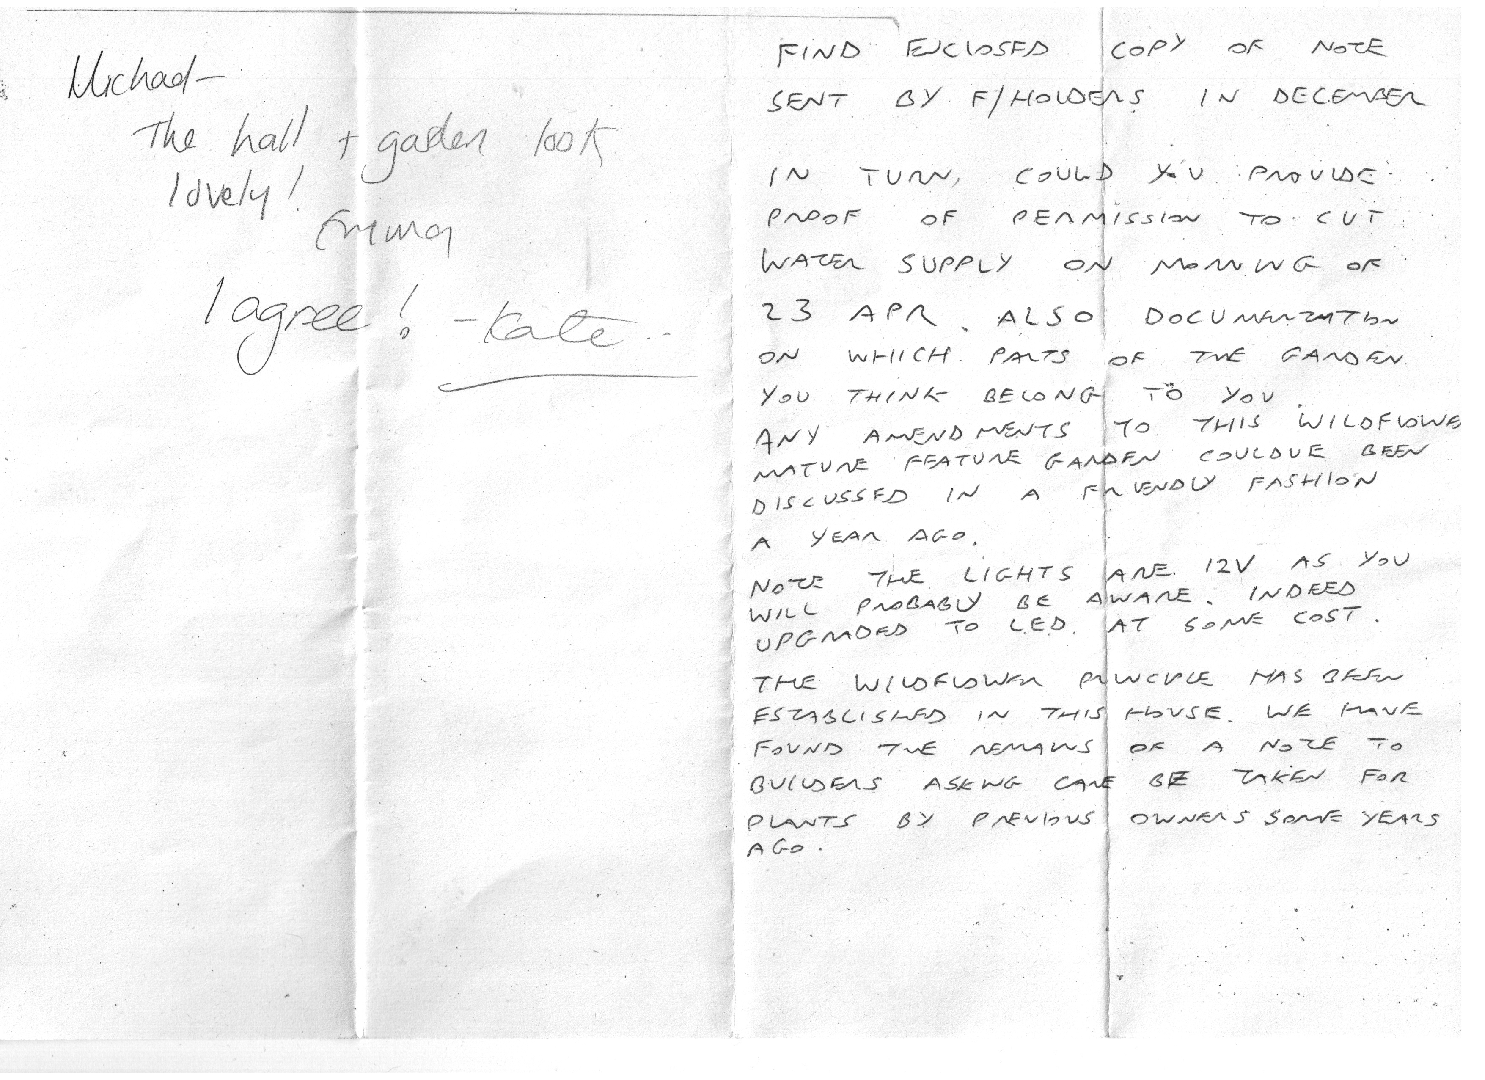 Michael—
The hall + garden look
lovely!
Emma
I agree! – Kate
FIND ENCLOSED COPY OF NOTE
SENT BY F/HOLDERS IN DECEMBER
IN TURN, COULD YOU PROVIDE
PROOF OF PERMISSION TO CUT
WATER SUPPLY ON MORNING OF
23 APR. ALSO DOCUMENTATION
ON WHICH PARTS OF THE GARDEN
YOU THINK BELONG TO YOU.
ANY AMENDMENTS TO THIS WILDFLOWE
MATURE FEATURE GARDEN COULDVE BEEN
DISCUSSED IN A FRIENDLY FASHION
A YEAR AGO.
NOTE THE LIGHTS ARE 12V AS YOU
WILL PROBABLY BE AWARE. INDEED
UPGRADED TO L.E.D. AT SOME COST.
THE WILDFLOWER PRINCIPLE HAS BEEN
ESTABLISHED IN THIS HOUSE. WE HAVE
FOUND THE REMAINS OF A NOTE TO
BUILDERS ASKING CARE BE TAKEN FOR
PLANTS BY PREVIOUS OWNERS SOME YEARS
AGO.